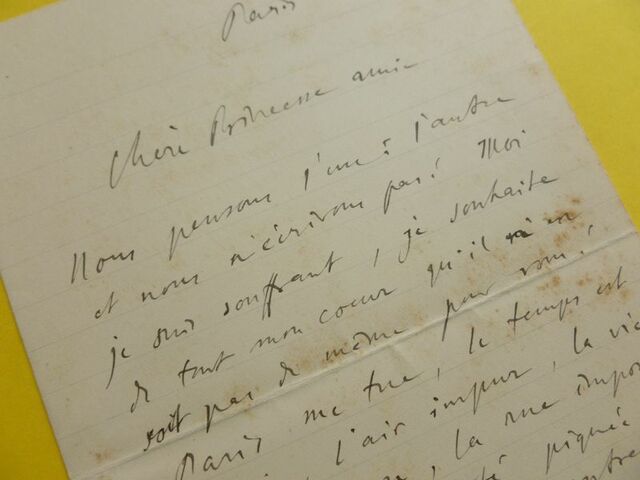 Paris
Chère Princesse amie
Nous pensons l'une à l'autre
et nous n'écrivons pas! Moi
je suis souffrant, je souhaite
de tout mon coeur qu'il n'en
soit pas de même pour vous!
Paris me tue, le temps est
l'air impur, la vie
la rue impo
piquée